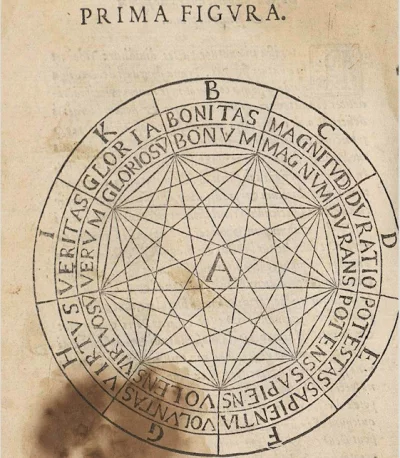 PRIMA FIGVRA.
B
C
D
E
F
G
H
I
K
BONITAS
MAGNITVD
DVRATIO
POTESTAS
SAPIENTIA
VOLVNTAS
VIRTVS
VERITAS
GLORIA
BONVM
MAGNVM
DVRANS
POTENS
SAPIENS
VOLENS
VIRTVOSV
VERVM
GLORIOSV
A